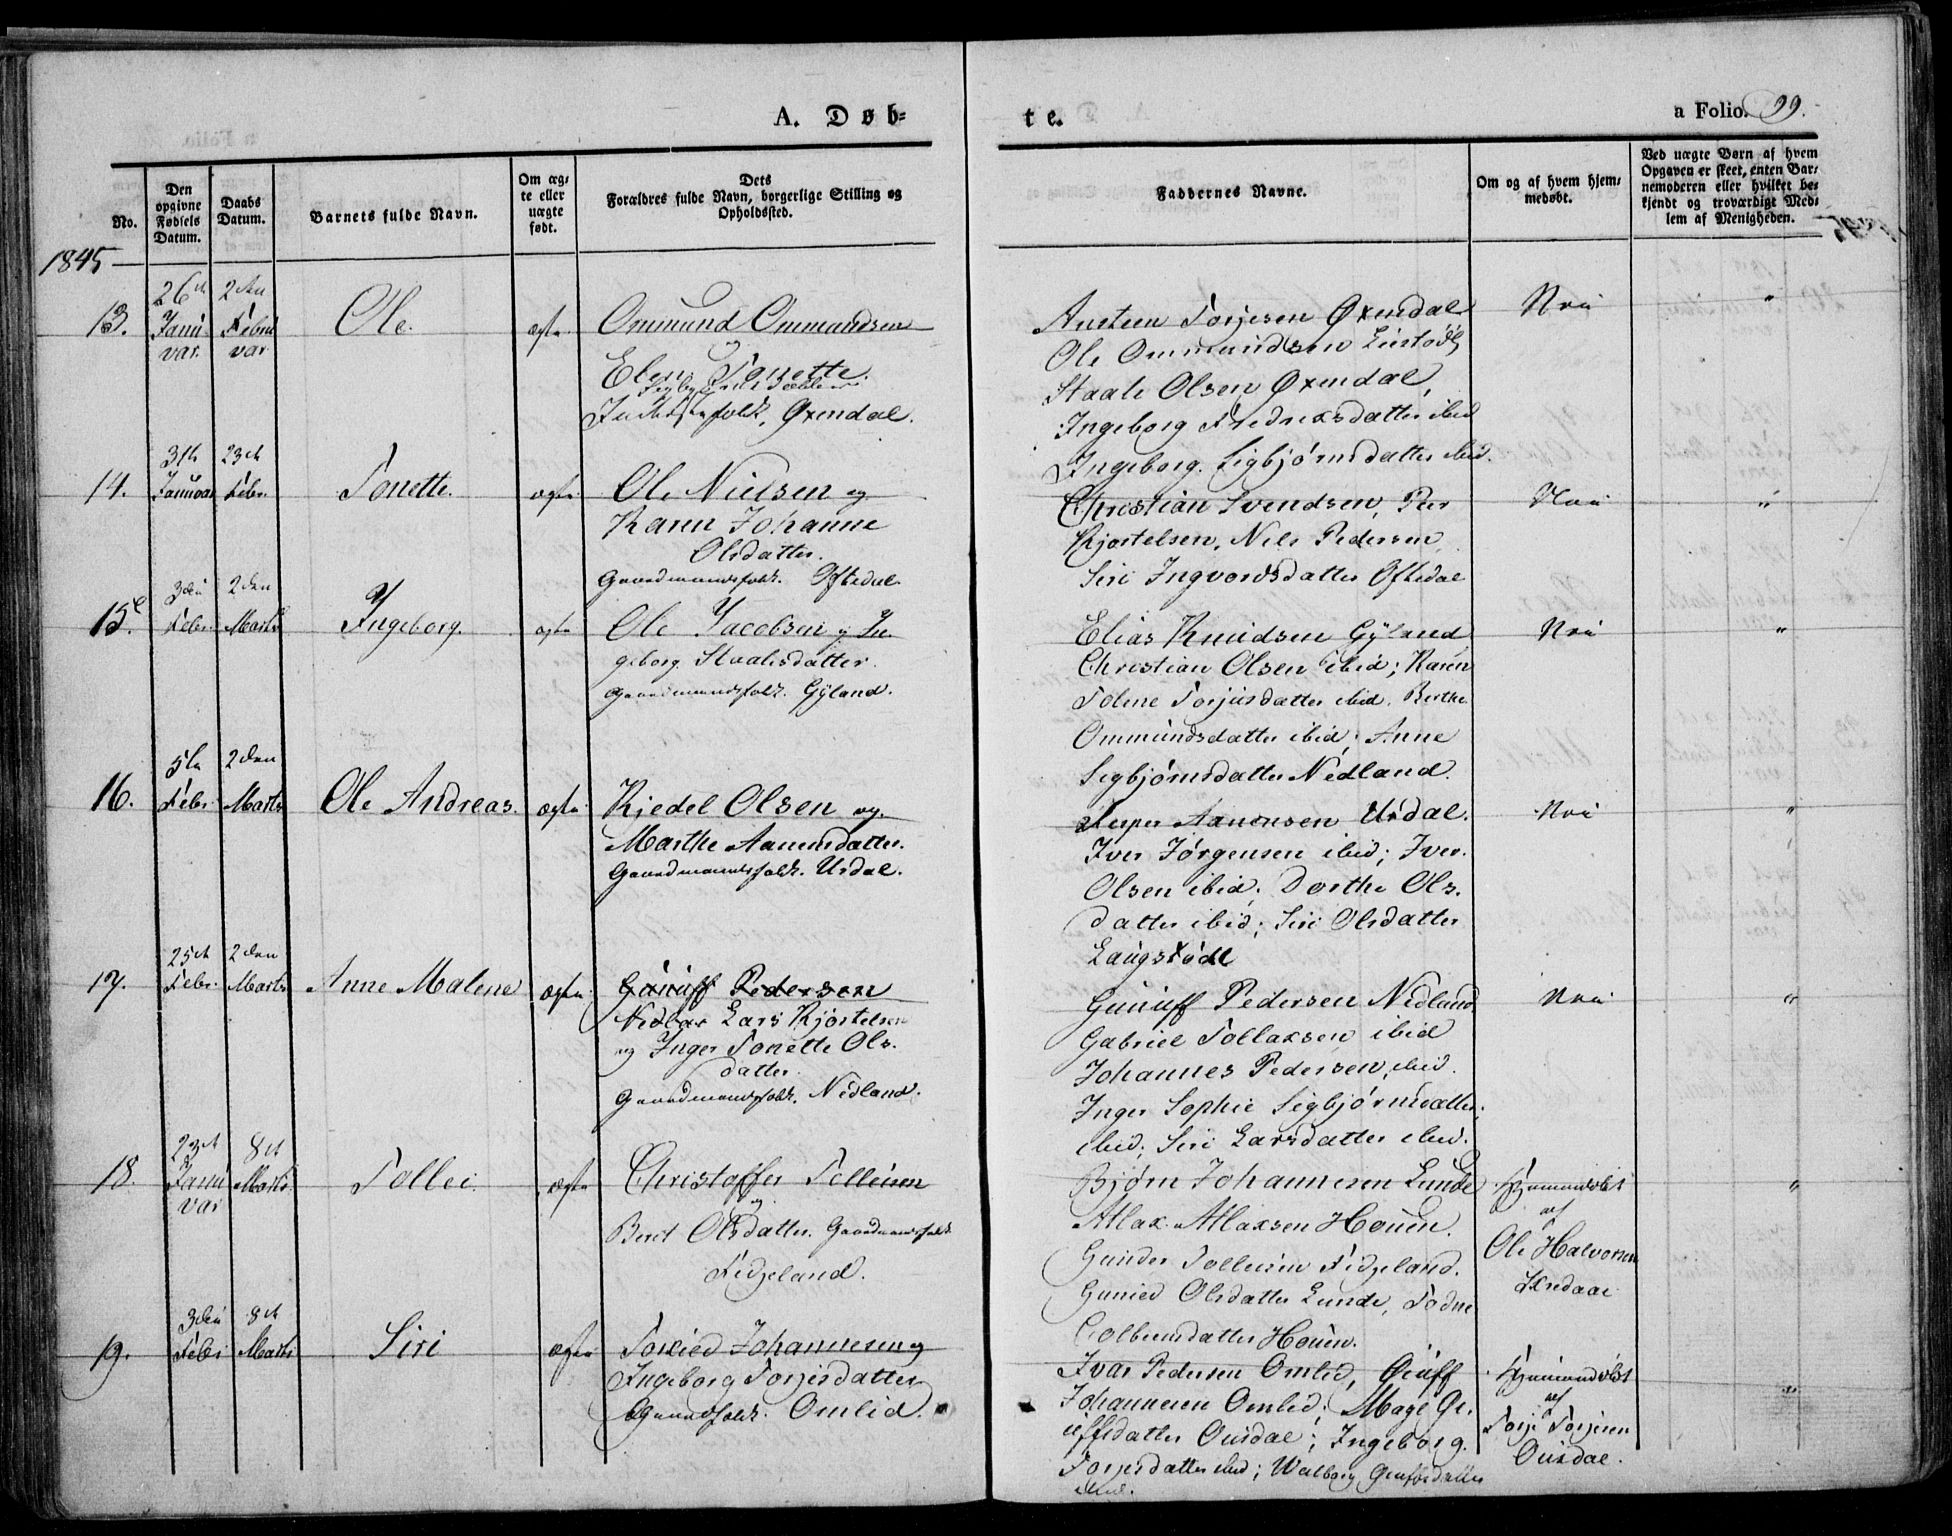 A. Døb-
te.
a Folio. 99.
No.
Den opgivne Fødsels Datum.
Daabs Datum.
Barnets fulde Navn.
Om ægte eller uægte født.
Dets Forældres fulde Navn, borgerlige Stilling og Opholdssted.
Faddernes Navne.
Om og af hvem hjemmedøbt.
Ved uægte Børn af hvem Opgaven er skeet, enten Barnemoderen eller hvilket bekjendt og troværdigt Medlem af Menigheden.
1845
13.
26de
Janu-
var.
2den
Febru
var
Ole.
ægte
Ommund Ommundsen
Elen Tonette
folk, Øxendal.
Austeen Torjesen Øxendal
Ole Ommundsen
Staale Olsen Øxendal,
Ingeborg Fredrexsdatter ibid
Ingeborg Sigbjørnsdatter ibid.
Nei
"
14.
31te
Januar
23de
Febr.
Tonette.
ægte
Ole Nielsen og
Karen Johanne
Olsdatter.
Gaardmandsfolk. Oftedal.
Christian Svendsen, Peer
Kjøstelsen, Nils Pedersen,
Siri Ingvordsdatter Oftedal
Nei
"
15.
3den
Febr.
2den
Marts
Ingeborg.
ægte
Ole Jacobsen og In
geborg Staalesdatter.
Gaardmandsfolk. Gyland.
Elias Knudsen Gyland
Christian Olsen ibid; Karen
Tolene Torjusdatter ibid. Berthe
Ommundsdatter ibid; Anne
Sigbjørnsdatter Nedland.
Nei
"
16.
5te
Febr.
2den
Marts
Ole Andreas.
ægte
Kjedel Olsen og
Marthe Aanensdatter.
Gaardmandsfolk. Urdal.
Jesper Aanensen Urdal.
Iver Jørgensen ibid; Iver.
Olsen ibid; Dorthe Ols.
datter ibid; Siri Olsdatter
Laugstødl
Nei
"
17.
25de
Febr.
2den
Marts
Anne Malene
ægte
Gunuff Pedersen
Nedlar Lars Kjøstelsen
og Inger Tonette Ols.
datter.
Gaardmandsfolk. Nedland.
Gunuff Pedersen Nedland.
Gabriel Tollaxsen ibid
Johannes Pedersen, ibid.
Inger Sophie Sigbjørnsdatter.
ibid; Siri Larsdatter ibid.
Nei
"
18.
23de
Janu
var
8de
Marts
Tollei.
ægte
Christoffer Tolleisen
og
Berit Olsdatter. Gaardmandsfolk
Fidjeland.
Bjørn Johannesen Lunde
Atlax Atlaxsen Houen.
Gunder Tolleisen Fidjeland.
Guneld Olsdatter Lunde, Todne
Colbensdatter Houen.
Hjemmedøbt
af
Ole Halvorsen
"
19.
3den
Febr
8de
Marts
Siri
ægte
Torkied Johannesen og
Ingeborg Torjesdatter
Gaardfolk. Omlid.
Ivar Pedersen Omlid, Guuff
Johannesen Omlid; Mage Gu
uffsdatter Ousdal; Ingeborg
Torjesdatter ibid; Walborg Gunfsdatter
ibid.
Hjemmedøbt
af
Torje Torjesen
Ousdal.
"